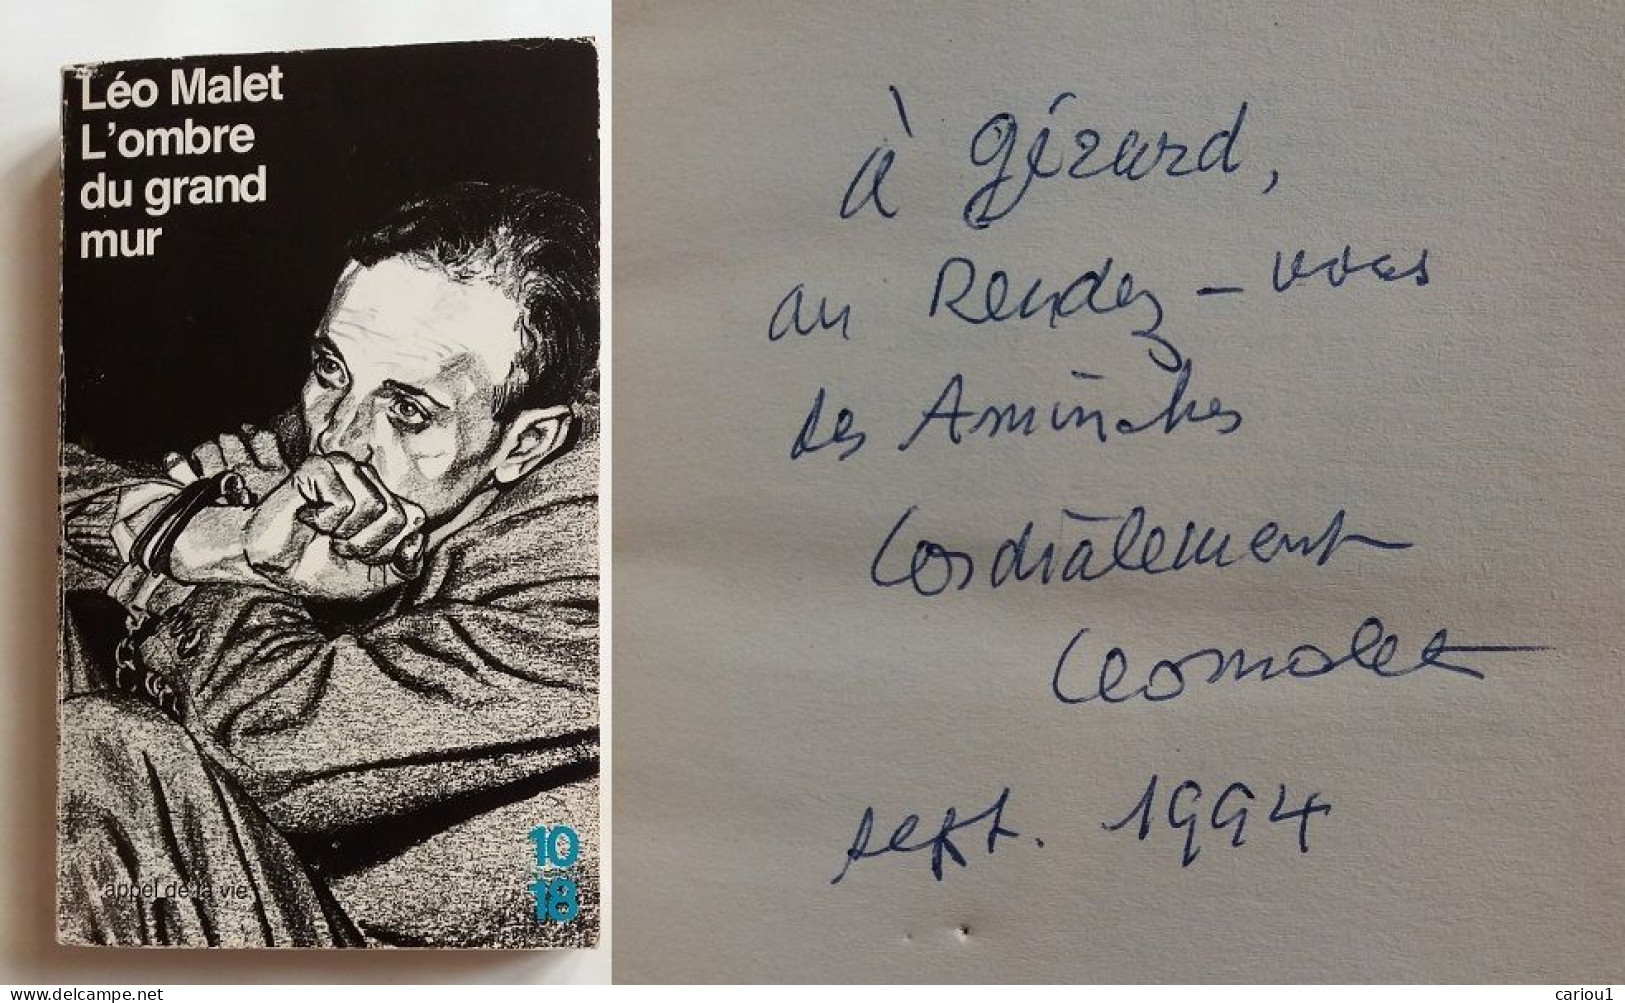 Léo Malet
L'ombre
du grand
mur
appel de la vie
10
18
à Gérard,
au Rendez-vous
des Aminches
Cordialement
Leo Malet
sept. 1994
www.delcampe.net
cariou1